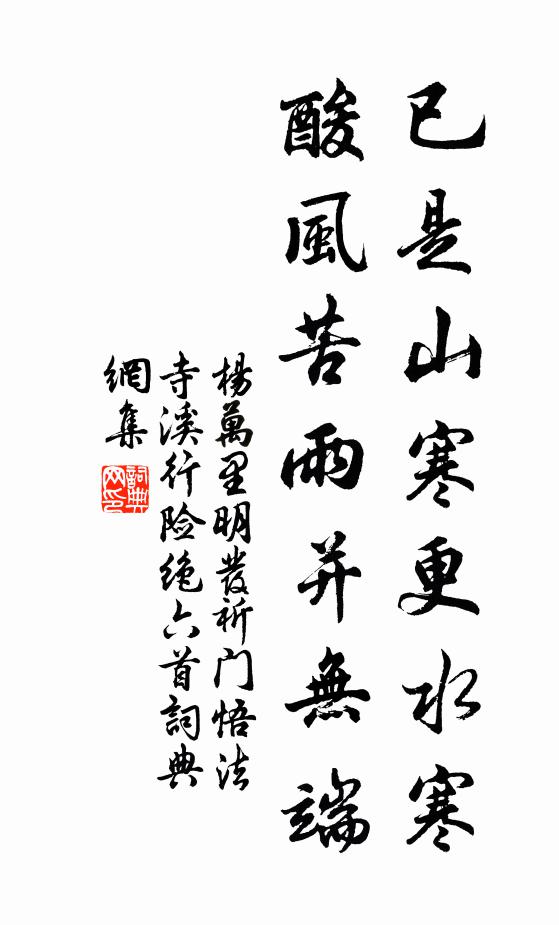 已是山寒更水寒
酸風苦雨并無端
楊萬里明發祈門悟法
寺溪行險絶六首詞典
網集
詞典
网印